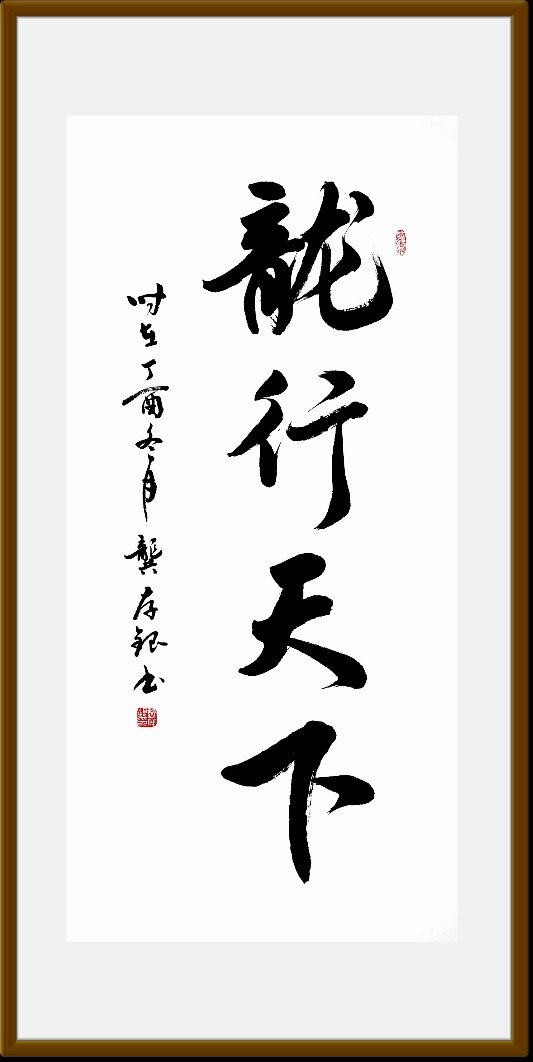 龍行天下
时在丁酉冬月龔存銀书